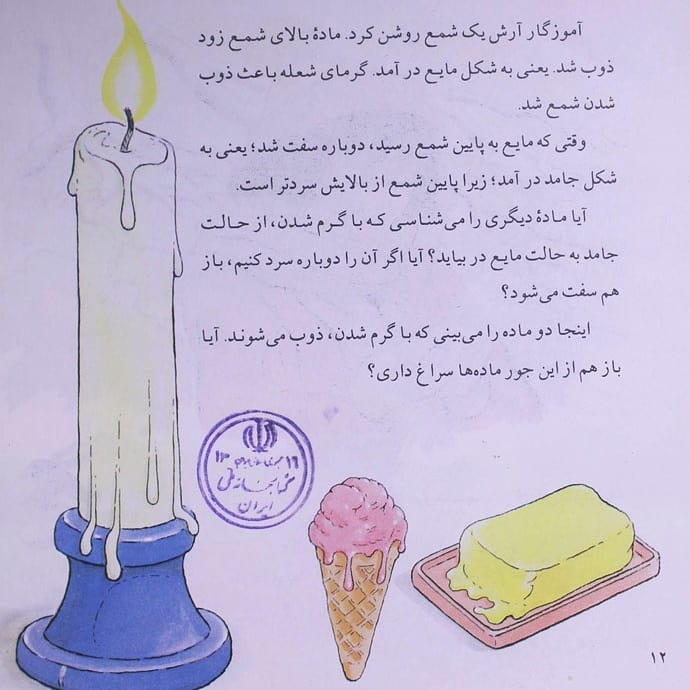 آموزگار آرش یک شمع روشن کرد. مادهٔ بالای شمع زود
ذوب شد. یعنی به شکل مایع در آمد. گرمای شعله باعث ذوب
شدن شمع شد.
وقتی که مایع به پایین شمع رسید، دوباره سفت شد؛ یعنی به
شکل جامد در آمد؛ زیرا پایین شمع از بالایش سردتر است.
آیا مادهٔ دیگری را می‌شناسی که با گرم شدن، از حالت
جامد به حالت مایع در بیاید؟ آیا اگر آن را دوباره سرد کنیم، باز
هم سفت می‌شود؟
اینجا دو ماده را می‌بینی که با گرم شدن، ذوب می‌شوند. آیا
باز هم از این جور ماده‌ها سراغ داری؟
کتابخانه ملی
ایران
۱۲